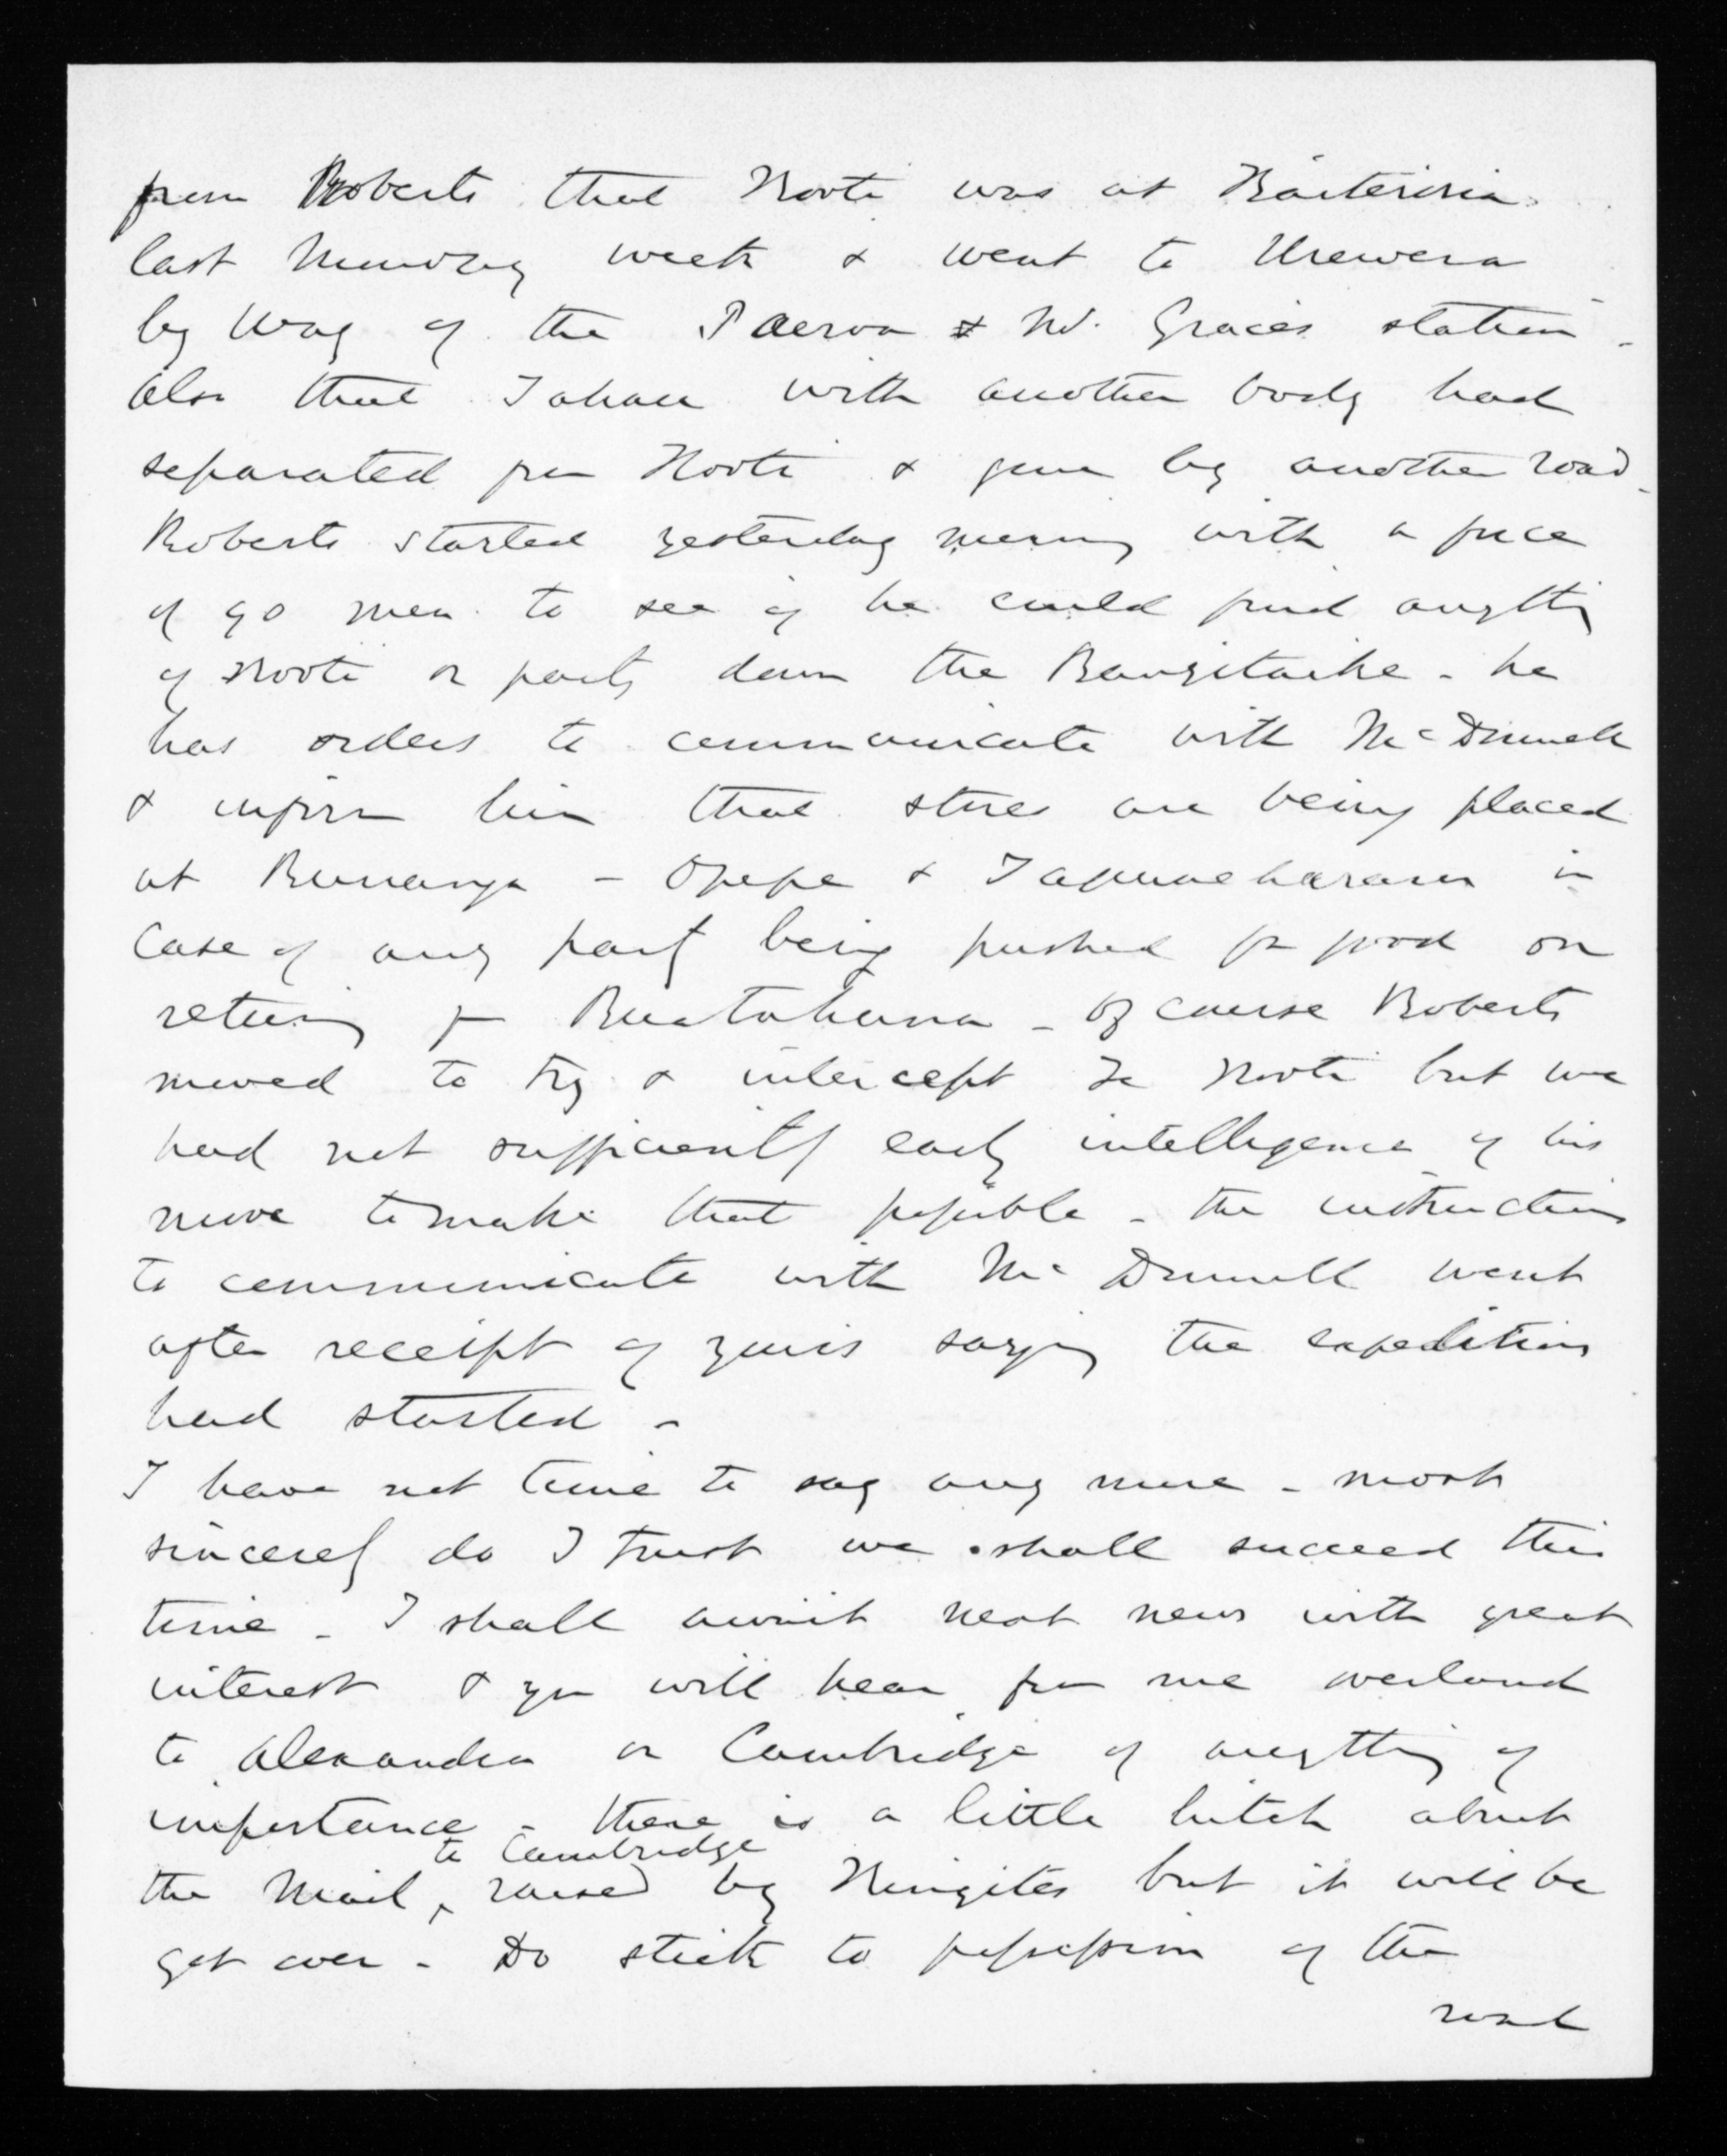 from Roberts that Kooti was at Kaiteriria
last Monday week & went to Urewera
by way of the Paeroa & Mr. Graces station -
Also that Tahau with another body had
separated from Kooti & gone by another road -
Roberts started yesterday morning with a force
of 90 men to see if he could find anything
of Kooti or party down the Rangitaike - he
has orders to communicate with McDonnell
& inform him that stores are being placed
at Runanga - Opepe & Tapuaeharuru in
case of any party being pushed for food on
returning from Ruatahuna - Of course Roberts
moved to try & intercept Te Kooti but we
had not sufficiently early intelligence of his
move to make that possible - the instructions
to communicate with McDonnell went
after receipt of yours saying the expedition
had started -
I have not time to say any more - most
sincerely do I trust we shall succeed this
time - I shall await next news with great
interest & you will hear from me overland
to Alexandra or Cambridge if anything of
importance - there is a little hitch about
the Mail to Cambridge raised by Kingites but it will be
got over - Do stick to possession of the
road